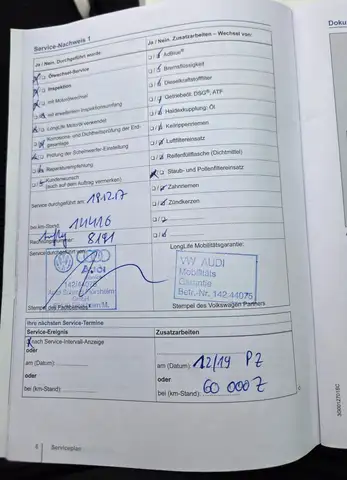 Service-Nachweis 1
Ja / Nein. Durchgeführt wurde:
Ölwechsel-Service
Inspektion
mit Motorölwechsel
mit erweitertem Inspektionsumfang
LongLife Motoröl verwendet
Korrosions- und Dichtheitsprüfung der Erdgasanlage
Prüfung der Scheinwerfer-Einstellung
Reparaturempfehlung
Kundenwunsch
(auch auf dem Auftrag vermerken)
Service durchgeführt am: 19.12.17
bei km-Stand: 14416
8191
Service durchgeführt durch:
Audi
142/44075
Stempel des Fachbetriebs
Ja / Nein. Zusatzarbeiten – Wechsel von:
AdBlue®
Bremsflüssigkeit
Dieselkraftstofffilter
Getriebeöl: DSG®, ATF
Haldexkupplung: Öl
Keilrippenriemen
Luftfiltereinsatz
Reifenfüllflasche (Dichtmittel)
Staub- und Pollenfiltereinsatz
Zahnriemen
Zündkerzen
LongLife Mobilitätsgarantie:
VW AUDI
Mobilitäts
Garantie
Betr.-Nr. 142 44075
Stempel des Volkswagen Partners
Ihre nächsten Service-Termine
Service-Ereignis
nach Service-Intervall-Anzeige
oder
am (Datum):
oder
bei (km-Stand):
Zusatzarbeiten
am (Datum): 12/19 PZ
oder
bei (km-Stand): 60 000 Z
4 Serviceplan
Doku